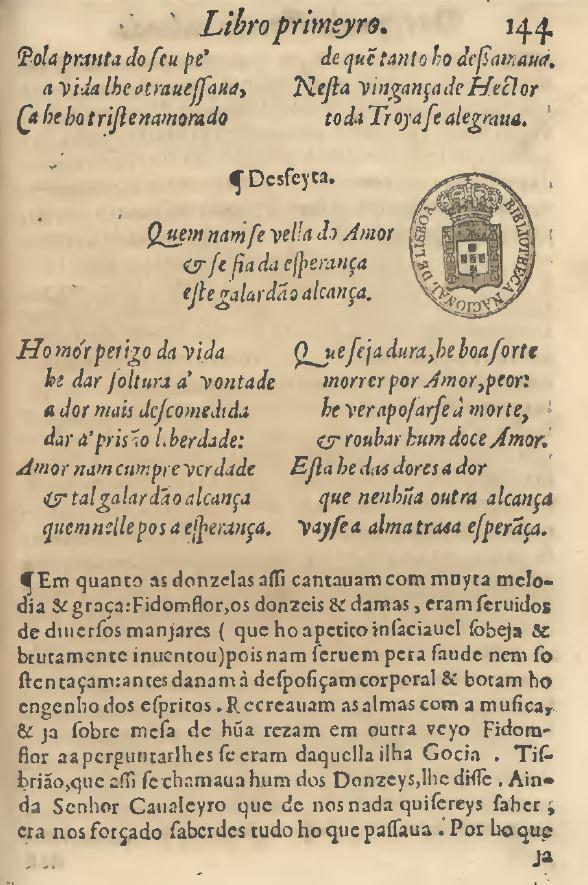 Libro primeyro. 144
Pola pranta do ſeu pe'
a vida lhe atraueſſaua,
Ca he ho triſte namorado
de quẽ tanto ho deſſamaua.
Neſta vingança de Hector
toda Troya ſe alegraua.
¶ Desfeyta.
Quem nam ſe vella do Amor
& ſe fia da eſperança
eſte galardão alcança.
BIBLIOTHECA NACIONAL DE LISBOA
Ho mór perigo da vida
he dar ſoltura a' vontade
a dor mais deſcomedida
dar a' prisão liberdade:
Amor nam cumpre verdade
& tal galardão alcança
quem nelle pos a eſperança.
Que ſeja dura, he boa ſorte
morrer por Amor, peor:
he ver apoſarſe à morte,
& roubar hum doce Amor.
Eſta he das dores a dor
que nenhũa outra alcança
vayſe a alma tras a eſperãça.
¶ Em quanto as donzelas aſſi cantauam com muyta melo-
dia & graça: Fidomflor, os donzeis & damas, eram ſeruidos
de diuerſos manjares ( que ho apetito inſaciauel ſobeja &
brutamente inuentou) pois nam ſeruem pera ſaude nem ſo
ſtentaçam: antes danam à deſpoſiçam corporal & botam ho
engenho dos eſpritos. Recreauam as almas com a muſica,
& ja ſobre meſa de hũa rezam em outra veyo Fidom-
flor aa perguntarlhes ſe eram daquella ilha Gocia. Tiſ-
brião, que aſſi ſe chamaua hum dos Donzeys, lhe diſſe. Ain-
da Senhor Caualeyro que de nos nada quiſereys ſaber ;
era nos forçado ſaberdes tudo ho que paſſaua. Por ho que
ja